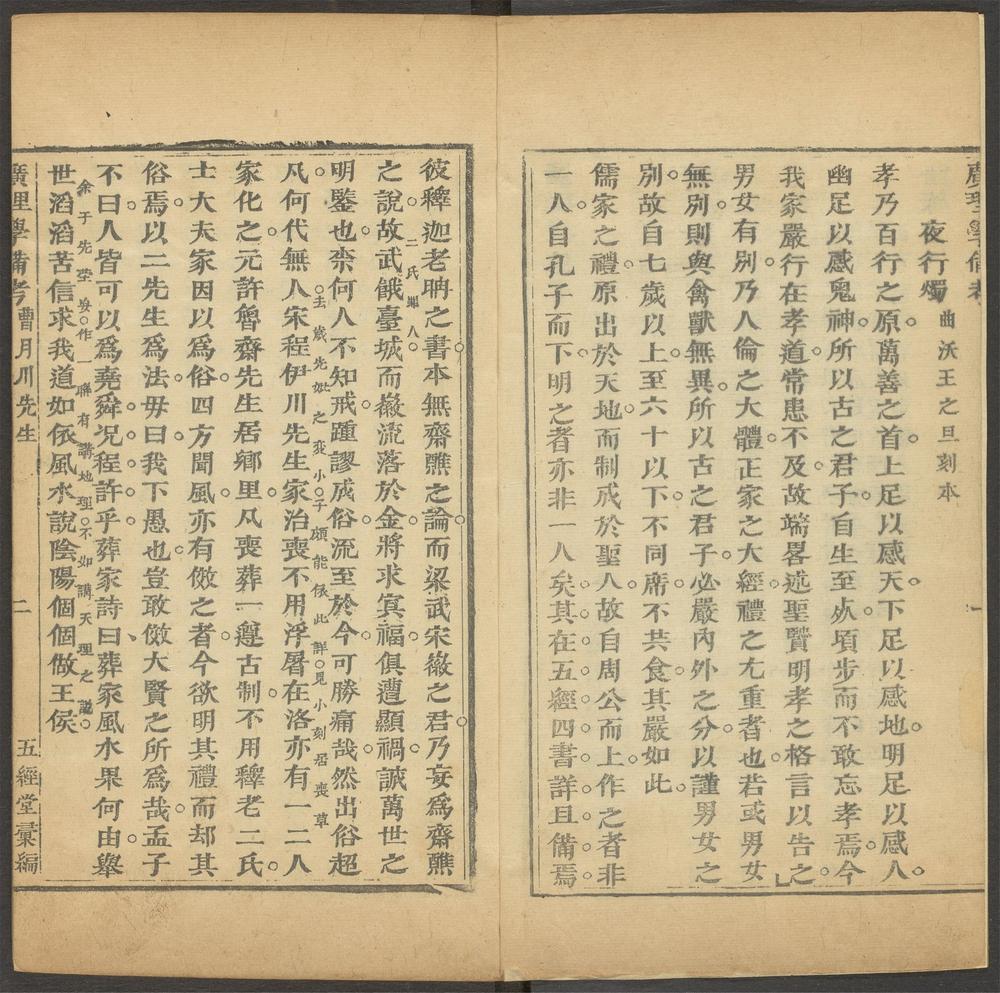 廣理學備考
夜行燭 曲沃王之旦刻本
孝乃百行之原萬善之首上足以感天下足以感地明足以感人
幽足以感鬼神所以古之君子自生至死頃步而不敢忘孝焉今
我家嚴行在孝道常患不及故端畧述聖賢明孝之格言以告之
男女有別乃人倫之大體正家之大經禮之尤重者也若或男女
無別則與禽獸無異所以古之君子必嚴內外之分以謹男女之
別故自七歲以上至六十以下不同席不共食其嚴如此
儒家之禮原出於天地而制成於聖人故自周公而上作之者非
一人自孔子而下明之者亦非一人矣其在五經四書詳且備焉
一
彼釋迦老聃之書本無齋醮之論而梁武宋徽之君乃妄為齋醮
之說故武餓臺城而徽流落於金將求冥福俱遭顯禍誠萬世之
二氏罪人
明鑒也柰何人不知戒踵謬成俗流至於今可勝痛哉然出俗超
凡何代無人宋程伊川先生家治喪不用浮屠在洛亦有一二人
去歲先妣之變小子頗能依此詳見小刻居喪草
家化之元許魯齋先生居鄉里凡喪葬一遵古制不用釋老二氏
士大夫家因以爲俗四方聞風亦有倣之者今欲明其禮而却其
俗焉以二先生爲法毋曰我下愚也豈敢倣大賢之所爲哉孟子
不曰人皆可以爲堯舜况程許乎葬家詩曰葬家風水果何由舉
余于先塋
作一聯有講地理不如講天理之
世滔滔苦信求我道如依風水說陰陽個個做王侯
廣理學備考 曹月川先生 二 五經堂彙編